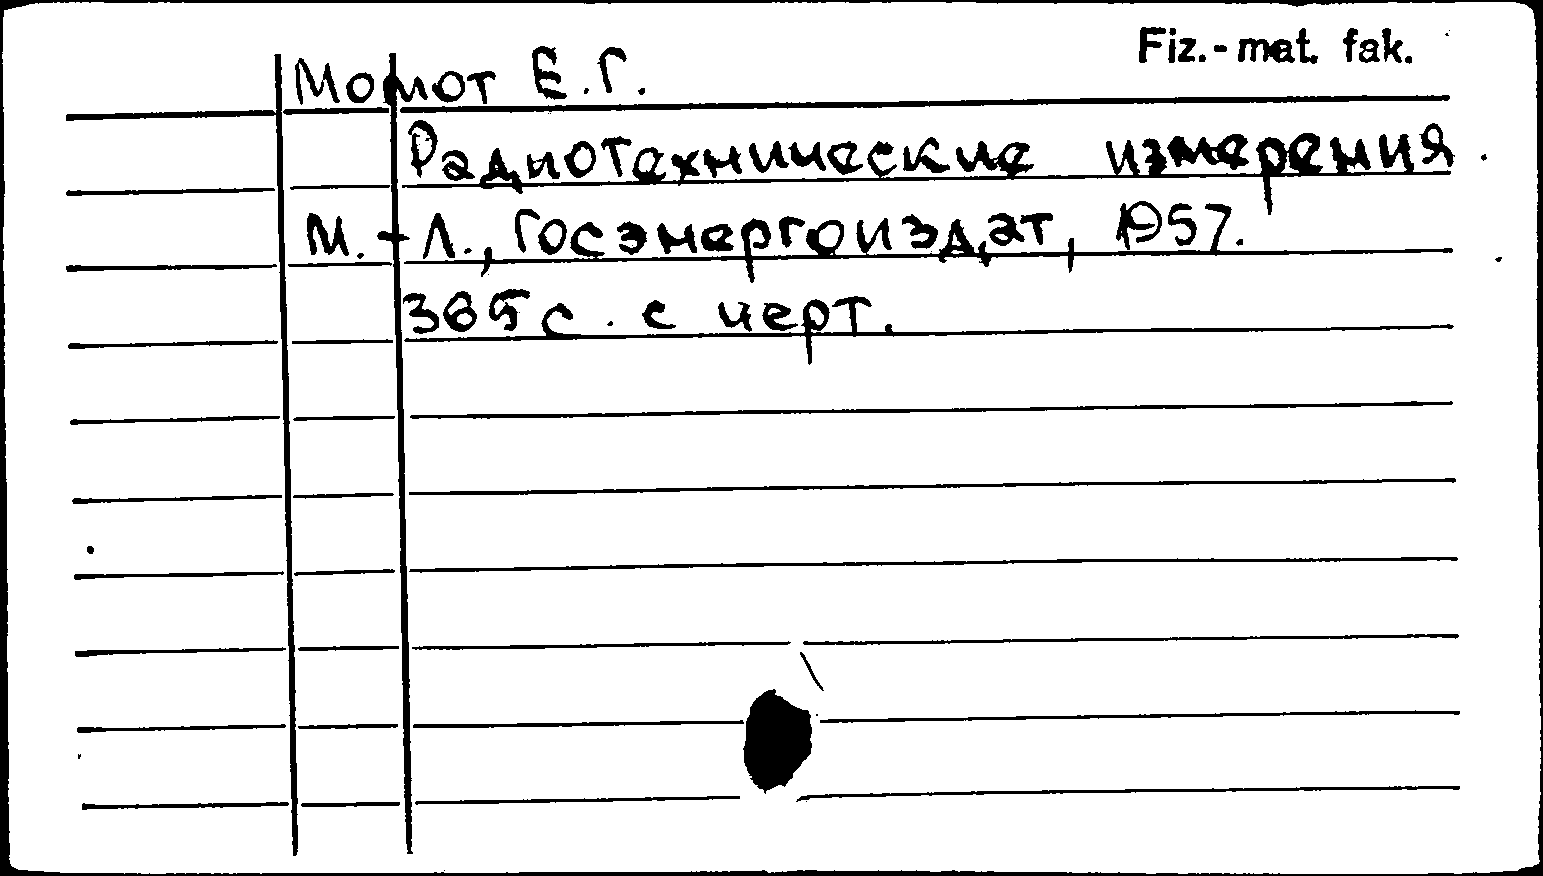 Fiz.-mat. fak.
Момот Е.Г.
Радиотехнические измерения.
М.-Л., Госэнергоиздат, 1957.
365 с. с черт.